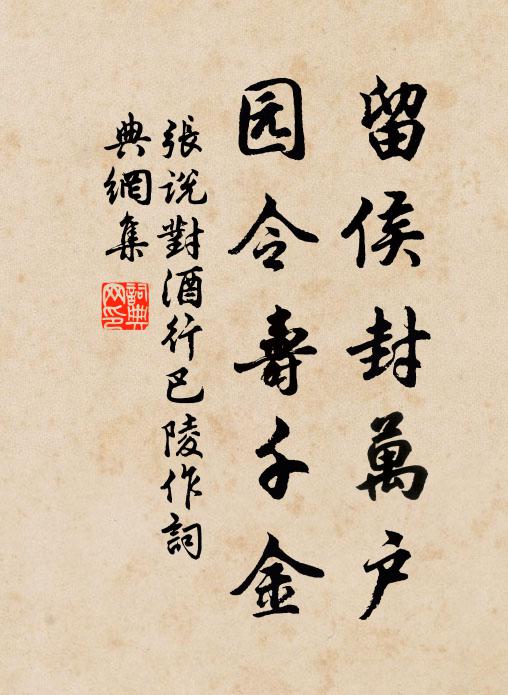 留侯封萬户
园令壽千金
張説對酒行巴陵作詞
典網集
詞典网印